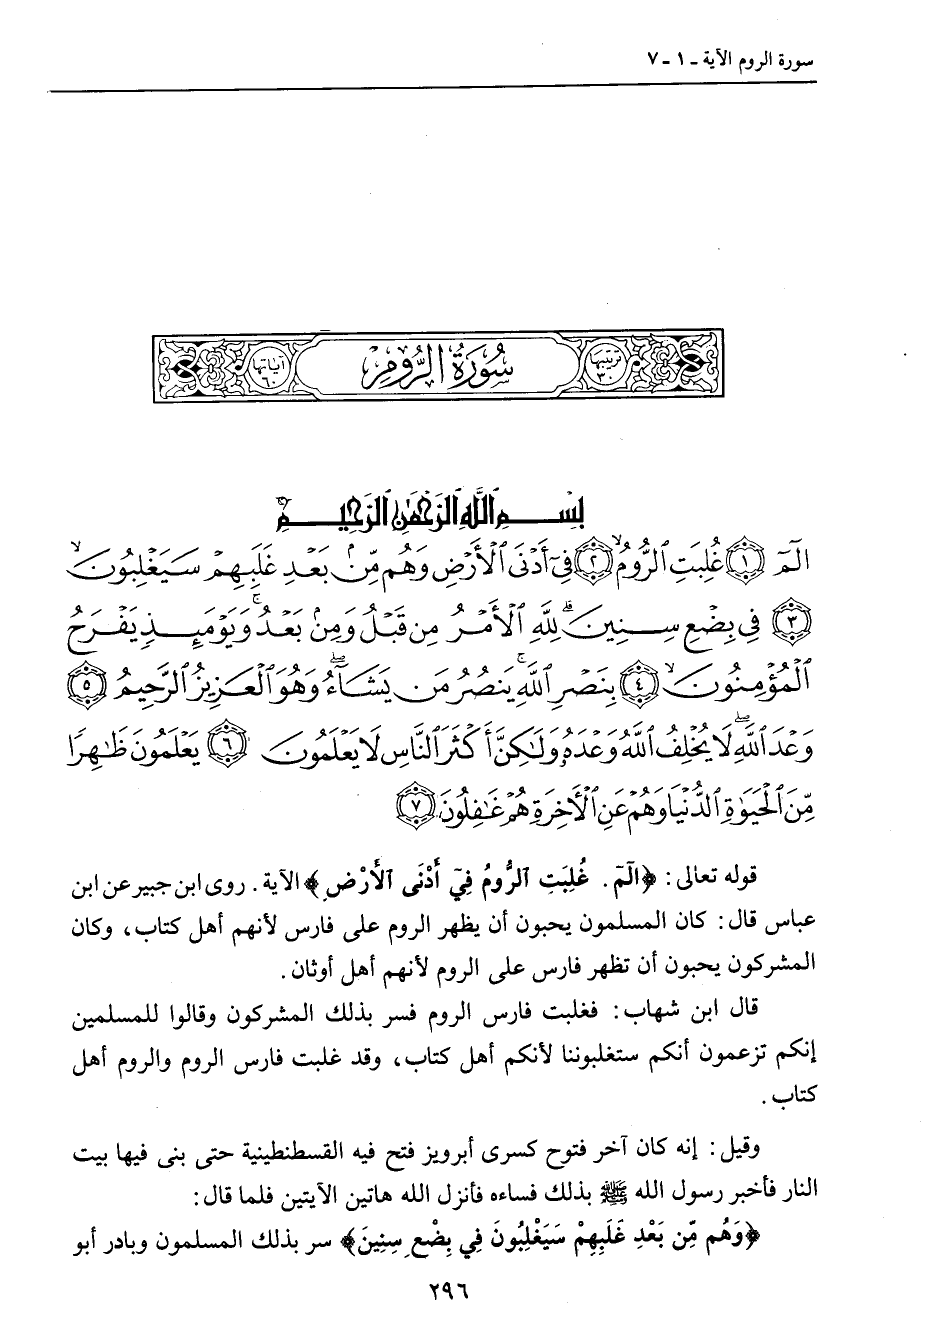 سورة الروم الآية ـ ١ ـ ٧
ترتيبها ٣٠ سُورَةُ الرُّومِ آياتها ٦٠
بِسْمِ اللَّهِ الرَّحْمَٰنِ الرَّحِيمِ
الٓمٓ ﴿١﴾ غُلِبَتِ الرُّومُ ﴿٢﴾ فِىٓ أَدْنَى الْأَرْضِ وَهُم مِّنۢ بَعْدِ غَلَبِهِمْ سَيَغْلِبُونَ
﴿٣﴾ فِى بِضْعِ سِنِينَ ۗ لِلَّهِ الْأَمْرُ مِن قَبْلُ وَمِنۢ بَعْدُ ۚ وَيَوْمَئِذٍ يَفْرَحُ
الْمُؤْمِنُونَ ﴿٤﴾ بِنَصْرِ اللَّهِ ۚ يَنصُرُ مَن يَشَآءُ ۖ وَهُوَ الْعَزِيزُ الرَّحِيمُ ﴿٥﴾
وَعْدَ اللَّهِ ۖ لَا يُخْلِفُ اللَّهُ وَعْدَهُۥ وَلَٰكِنَّ أَكْثَرَ النَّاسِ لَا يَعْلَمُونَ ﴿٦﴾ يَعْلَمُونَ ظَٰهِرًا
مِّنَ الْحَيَوٰةِ الدُّنْيَا وَهُمْ عَنِ الْآخِرَةِ هُمْ غَٰفِلُونَ ﴿٧﴾
قوله تعالى: ﴿الٓمٓ . غُلِبَتِ الرُّومُ فِيٓ أَدْنَى الْأَرْضِ﴾ الآية. روى ابن جبير عن ابن
عباس قال: كان المسلمون يحبون أن يظهر الروم على فارس لأنهم أهل كتاب، وكان
المشركون يحبون أن تظهر فارس على الروم لأنهم أهل أوثان.
قال ابن شهاب: فغلبت فارس الروم فسر بذلك المشركون وقالوا للمسلمين
إنكم تزعمون أنكم ستغلبوننا لأنكم أهل كتاب، وقد غلبت فارس الروم والروم أهل
كتاب.
وقيل: إنه كان آخر فتوح كسرى أبرويز فتح فيه القسطنطينية حتى بنى فيها بيت
النار فأخبر رسول الله ﷺ بذلك فساءه فأنزل الله هاتين الآيتين فلما قال:
﴿وَهُم مِّن بَعْدِ غَلَبِهِمْ سَيَغْلِبُونَ فِي بِضْعِ سِنِينَ﴾ سر بذلك المسلمون وبادر أبو
٢٩٦